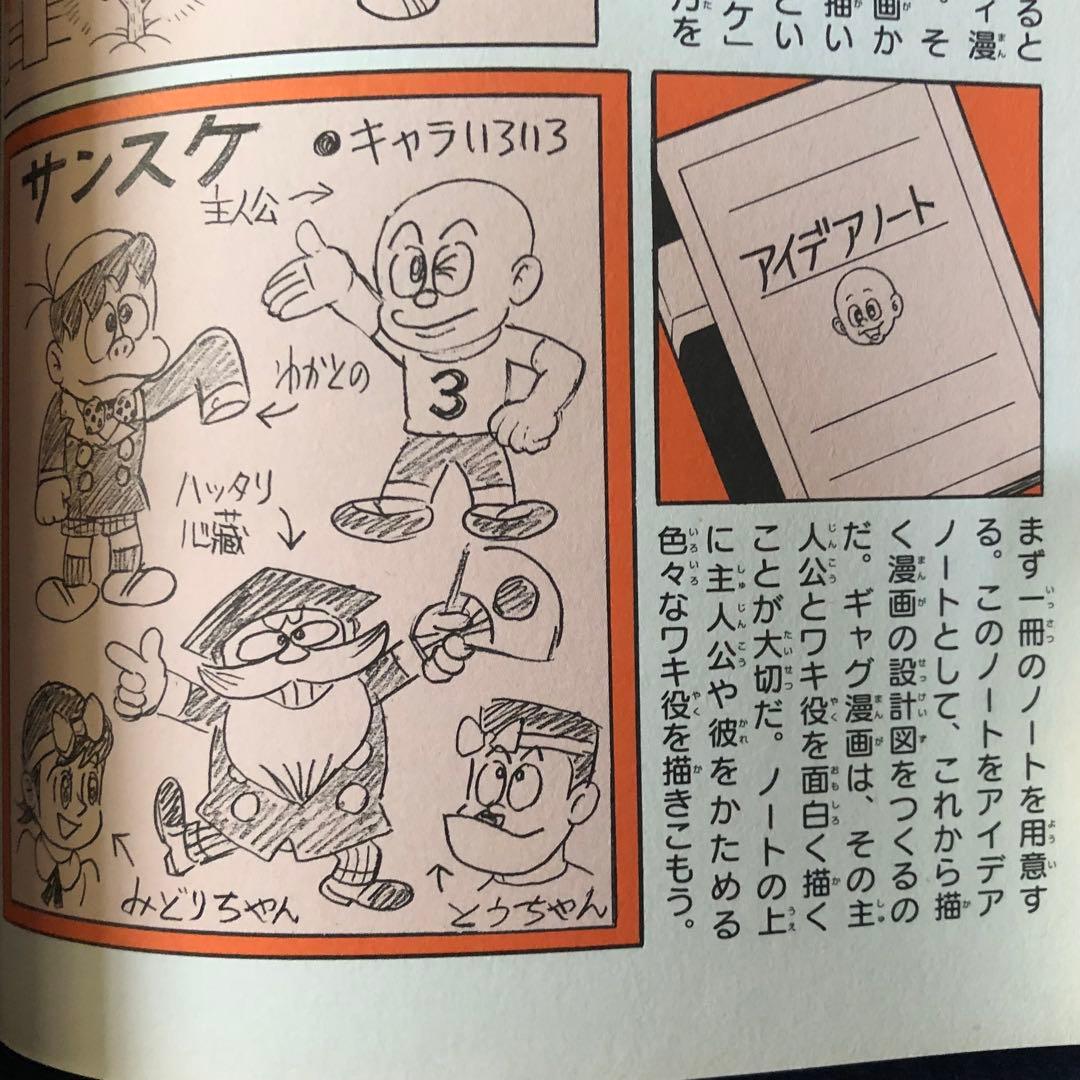 ると
ィ漫
。そ
画か
描い
とい
ケ」
力を
サンスケ
●キャラいろいろ
主人公→
ゆがとの
ハッタリ
心臓
みどりちゃん
とうちゃん
アイデアノート
まず一冊のノートを用意す
る。このノートをアイデア
ノートとして、これから描
く漫画の設計図をつくるの
だ。ギャグ漫画は、その主
人公とワキ役を面白く描く
ことが大切だ。ノートの上
に主人公や彼をかためる
色々なワキ役を描きこもう。
3